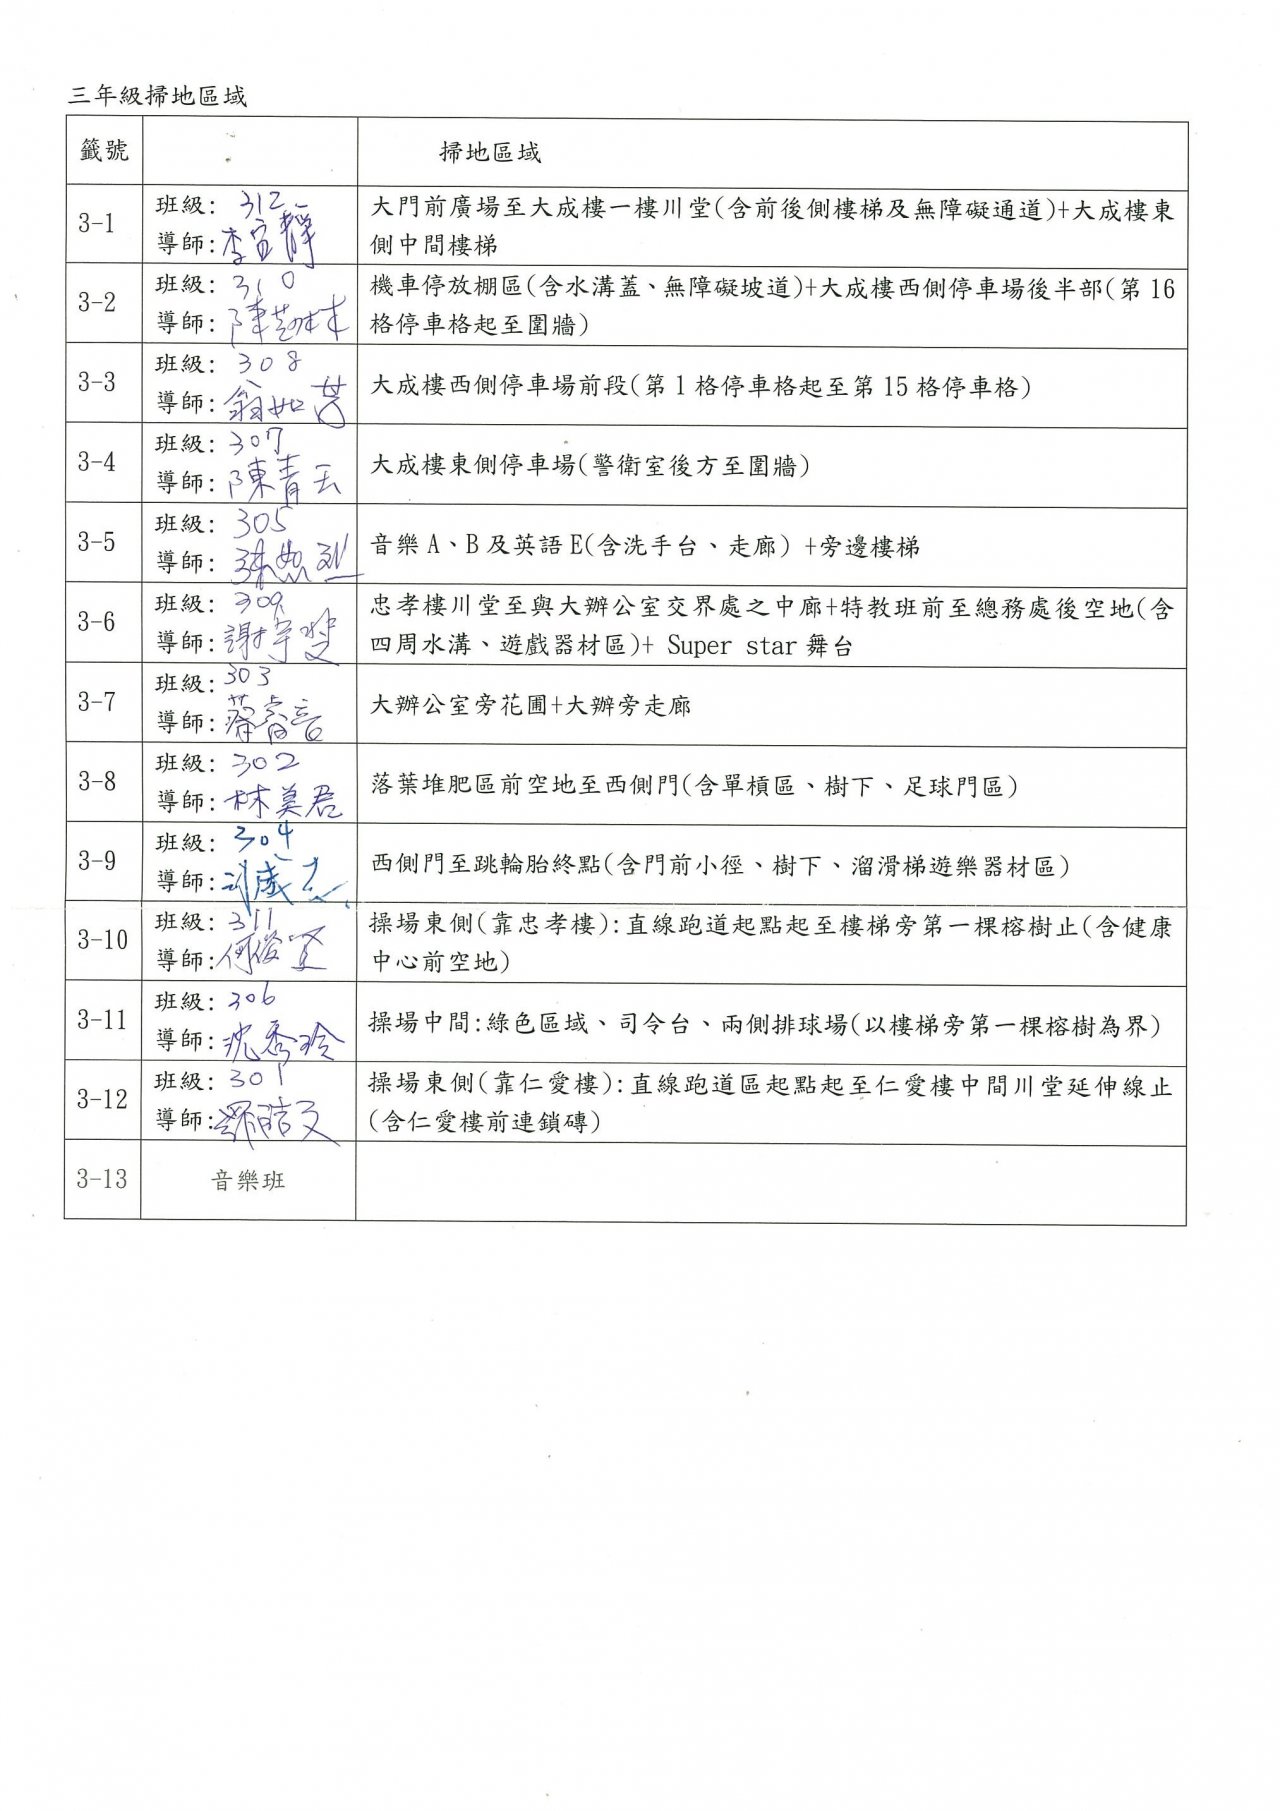 三年級掃地區域
籤號
掃地區域
3-1
班級: 312
導師:李宜靜
大門前廣場至大成樓一樓川堂(含前後側樓梯及無障礙通道)+大成樓東
側中間樓梯
3-2
班級: 310
導師:陳
機車停放棚區(含水溝蓋、無障礙坡道)+大成樓西側停車場後半部(第16
格停車格起至圍牆)
3-3
班級: 308
導師:翁如
大成樓西側停車場前段(第1格停車格起至第15格停車格)
3-4
班級: 307
導師:陳青
大成樓東側停車場(警衛室後方至圍牆)
3-5
班級: 305
導師:
音樂A、B及英語E(含洗手台、走廊) +旁邊樓梯
3-6
班級: 309
導師:謝宇雙
忠孝樓川堂至與大辦公室交界處之中廊+特教班前至總務處後空地(含
四周水溝、遊戲器材區)+ Super star舞台
3-7
班級: 303
導師:蔡
大辦公室旁花圃+大辦旁走廊
3-8
班級: 302
導師:林美君
落葉堆肥區前空地至西側門(含單槓區、樹下、足球門區)
3-9
班級: 304
導師:
西側門至跳輪胎終點(含門前小徑、樹下、溜滑梯遊樂器材區)
3-10
班級: 311
導師:何俊
操場東側(靠忠孝樓):直線跑道起點起至樓梯旁第一棵榕樹止(含健康
中心前空地)
3-11
班級: 306
導師:沈秀玲
操場中間:綠色區域、司令台、兩側排球場(以樓梯旁第一棵榕樹為界)
3-12
班級: 301
導師:
操場東側(靠仁愛樓):直線跑道區起點起至仁愛樓中間川堂延伸線止
(含仁愛樓前連鎖磚)
3-13
音樂班